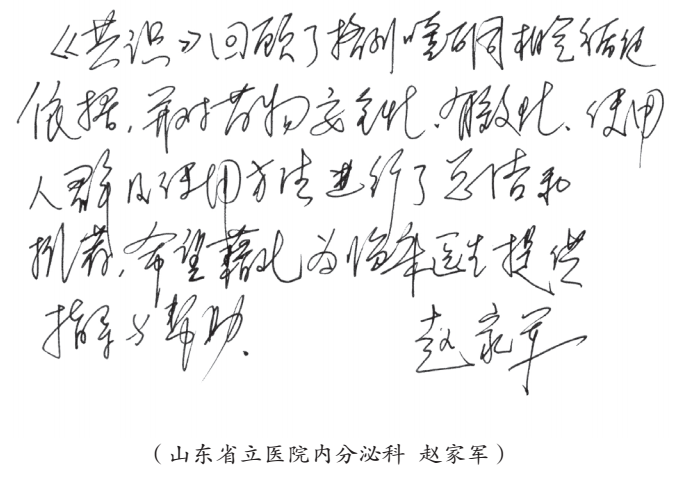 《共识》回顾了格列喹酮相关循证
依据,并对药物安全性、有效性、使用
人群及使用方法进行了总结和
推荐,希望藉此为临床医生提供
指导与帮助.
赵家军
(山东省立医院内分泌科 赵家军)